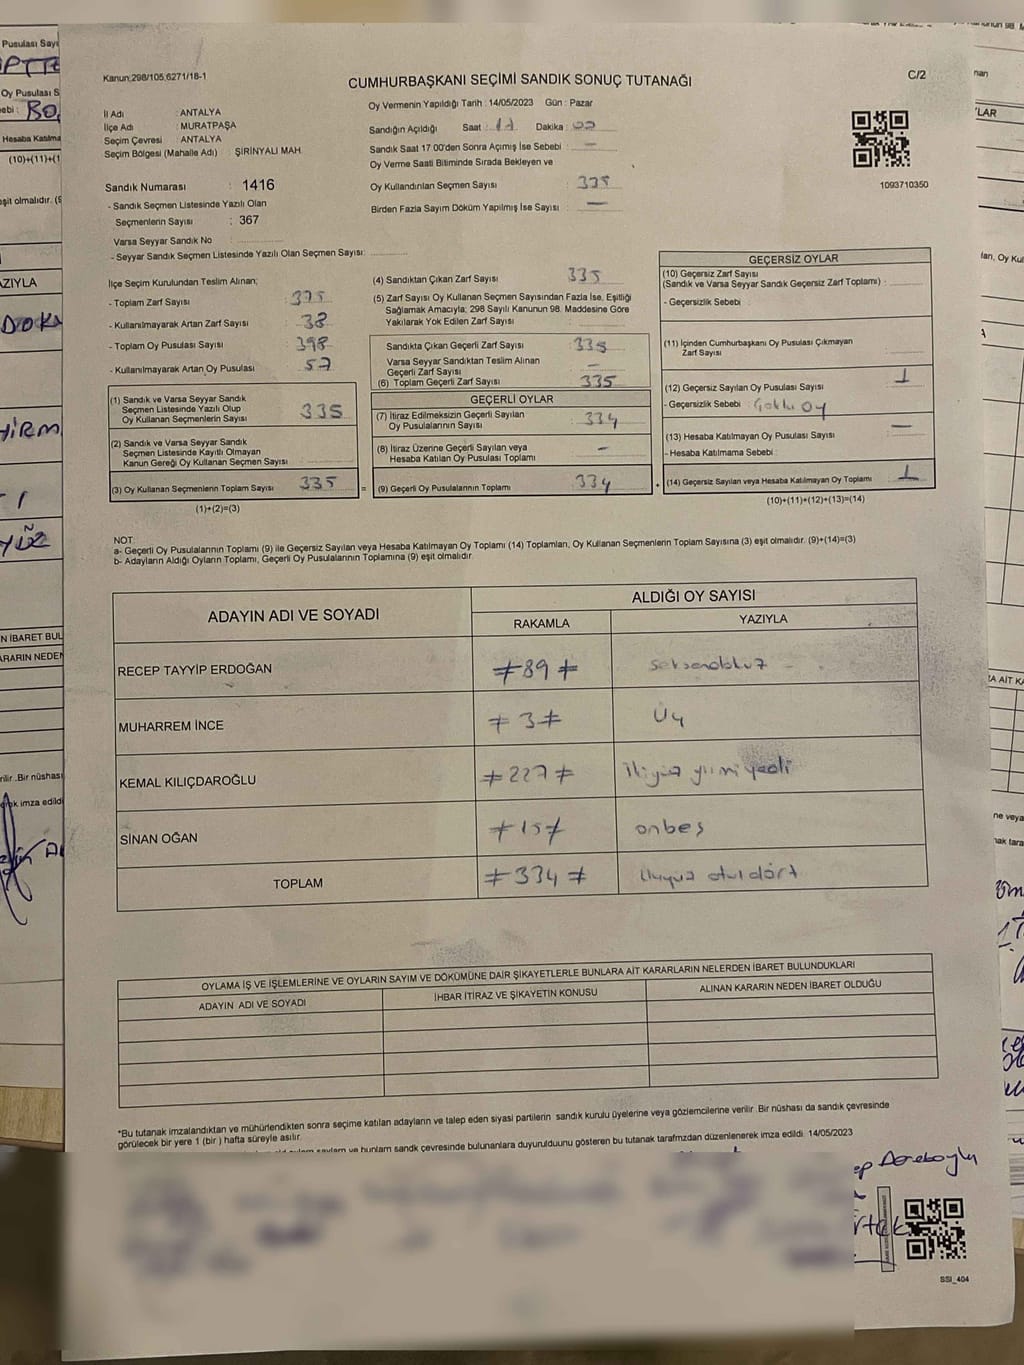 Kanun:298/105,6271/18-1
CUMHURBAŞKANI SEÇİMİ SANDIK SONUÇ TUTANAĞI
C/2
İl Adı : ANTALYA
İlçe Adı : MURATPAŞA
Seçim Çevresi : ANTALYA
Seçim Bölgesi (Mahalle Adı) : ŞİRİNYALI MAH.
Sandık Numarası : 1416
- Sandık Seçmen Listesinde Yazılı Olan
Seçmenlerin Sayısı : 367
Varsa Seyyar Sandık No
- Seyyar Sandık Seçmen Listesinde Yazılı Olan Seçmen Sayısı:
Oy Vermenin Yapıldığı Tarih : 14/05/2023 Gün : Pazar
Sandığın Açıldığı Saat : 17 Dakika : 00
Sandık Saat 17.00'den Sonra Açımış İse Sebebi : —
Oy Verme Saati Bitiminde Sırada Bekleyen ve
Oy Kullandırılan Seçmen Sayısı : 335
Birden Fazla Sayım Döküm Yapılmış İse Sayısı : —
1093710350
İlçe Seçim Kurulundan Teslim Alınan;
- Toplam Zarf Sayısı : 375
- Kullanılmayarak Artan Zarf Sayısı : 38
- Toplam Oy Pusulası Sayısı : 398
- Kullanılmayarak Artan Oy Pusulası : 57
(1) Sandık ve Varsa Seyyar Sandık
Seçmen Listesinde Yazılı Olup
Oy Kullanan Seçmenlerin Sayısı : 335
(2) Sandık ve Varsa Seyyar Sandık
Seçmen Listesinde Kayıtlı Olmayan
Kanun Gereği Oy Kullanan Seçmen Sayısı
(3) Oy Kullanan Seçmenlerin Toplam Sayısı : 335
(1)+(2)=(3)
(4) Sandıktan Çıkan Zarf Sayısı : 335
(5) Zarf Sayısı Oy Kullanan Seçmen Sayısından Fazla İse, Eşitliği
Sağlamak Amacıyla; 298 Sayılı Kanunun 98. Maddesine Göre
Yakılarak Yok Edilen Zarf Sayısı :
Sandıkta Çıkan Geçerli Zarf Sayısı : 335
Varsa Seyyar Sandıktan Teslim Alınan
Geçerli Zarf Sayısı : —
(6) Toplam Geçerli Zarf Sayısı : 335
GEÇERLİ OYLAR
(7) İtiraz Edilmeksizin Geçerli Sayılan
Oy Pusulalarının Sayısı : 334
(8) İtiraz Üzerine Geçerli Sayılan veya
Hesaba Katılan Oy Pusulası Toplamı : —
(9) Geçerli Oy Pusulalarının Toplamı : 334
GEÇERSİZ OYLAR
(10) Geçersiz Zarf Sayısı
(Sandık ve Varsa Seyyar Sandık Geçersiz Zarf Toplamı) :
- Geçersizlik Sebebi :
(11) İçinden Cumhurbaşkanı Oy Pusulası Çıkmayan
Zarf Sayısı
(12) Geçersiz Sayılan Oy Pusulası Sayısı : 1
- Geçersizlik Sebebi : Çoklu oy
(13) Hesaba Katılmayan Oy Pusulası Sayısı : —
- Hesaba Katılmama Sebebi :
(14) Geçersiz Sayılan veya Hesaba Katılmayan Oy Toplamı : 1
(10)+(11)+(12)+(13)=(14)
NOT:
a- Geçerli Oy Pusulalarının Toplamı (9) ile Geçersiz Sayılan veya Hesaba Katılmayan Oy Toplamı (14) Toplamları, Oy Kullanan Seçmenlerin Toplam Sayısına (3) eşit olmalıdır. (9)+(14)=(3)
b- Adayların Aldığı Oyların Toplamı, Geçerli Oy Pusulalarının Toplamına (9) eşit olmalıdır.
ADAYIN ADI VE SOYADI
ALDIĞI OY SAYISI
RAKAMLA YAZIYLA
RECEP TAYYİP ERDOĞAN ≠ 89 ≠ seksendokuz
MUHARREM İNCE ≠ 3 ≠ Üç
KEMAL KILIÇDAROĞLU ≠ 227 ≠ ikiyüz yirmi yedi
SİNAN OĞAN ≠ 15 ≠ onbeş
TOPLAM ≠ 334 ≠ üçyüz otuz dört
OYLAMA İŞ VE İŞLEMLERİNE VE OYLARIN SAYIM VE DÖKÜMÜNE DAİR ŞİKAYETLERLE BUNLARA AİT KARARLARIN NELERDEN İBARET BULUNDUKLARI
ADAYIN ADI VE SOYADI İHBAR İTİRAZ VE ŞİKAYETİN KONUSU ALINAN KARARIN NEDEN İBARET OLDUĞU
*Bu tutanak imzalandıktan ve mühürlendikten sonra seçime katılan adayların ve talep eden siyasi partilerin sandık kurulu üyelerine veya gözlemcilerine verilir .Bir nüshası da sandık çevresinde
görülecek bir yere 1 (bir ) hafta süreyle asılır.
sandk çevresinde bulunanlara duyurulduunu gösteren bu tutanak tarafmzdan düzenlenerek imza edildi. 14/05/2023
SSI_404